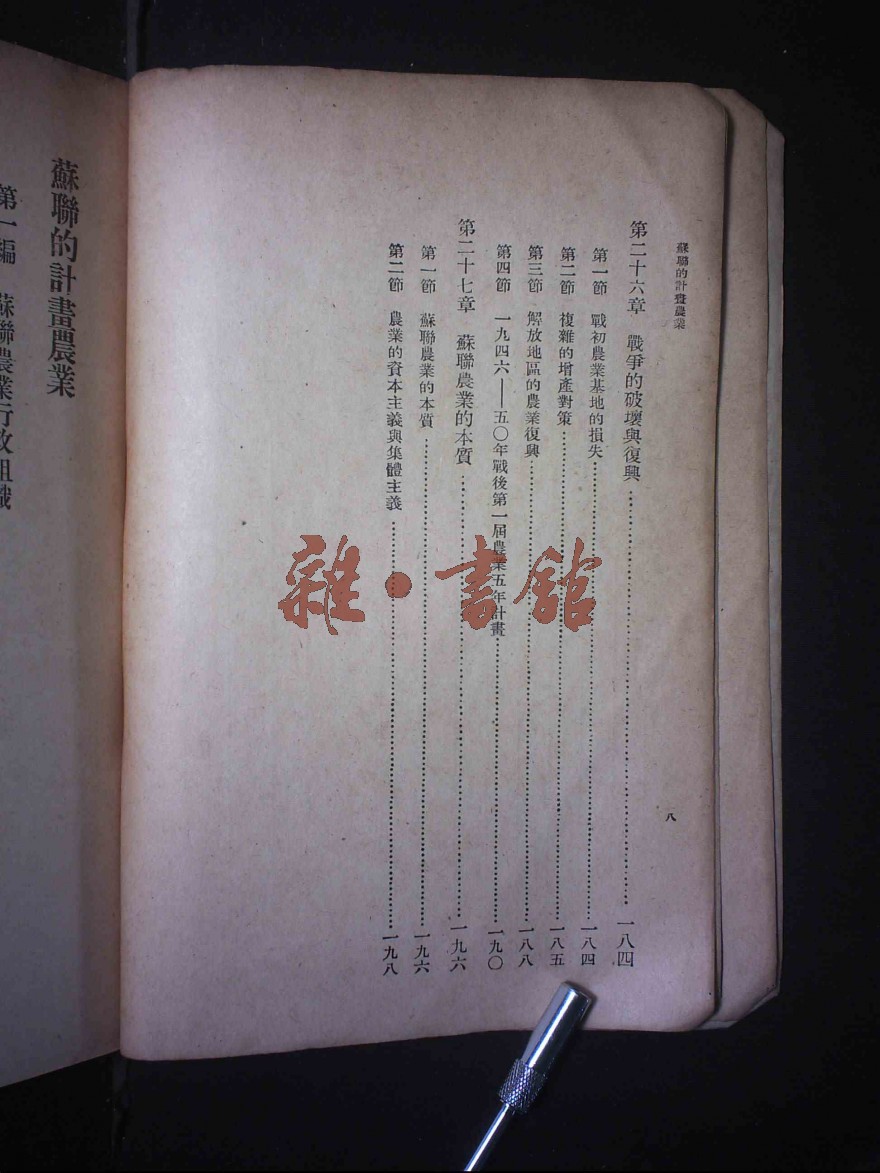 蘇聯的計畫農業
八
第二十六章　戰爭的破壞與復興……一八四
第一節　戰初農業基地的損失……一八四
第二節　複雜的增產對策……一八五
第三節　解放地區的農業復興……一八八
第四節　一九四六——五〇年戰後第一屆農業五年計畫……一九〇
第二十七章　蘇聯農業的本質……一九六
第一節　蘇聯農業的本質……一九六
第二節　農業的資本主義與集體主義……一九八
雜·書館
蘇聯的計畫農業
第一編　蘇聯農業行政組織